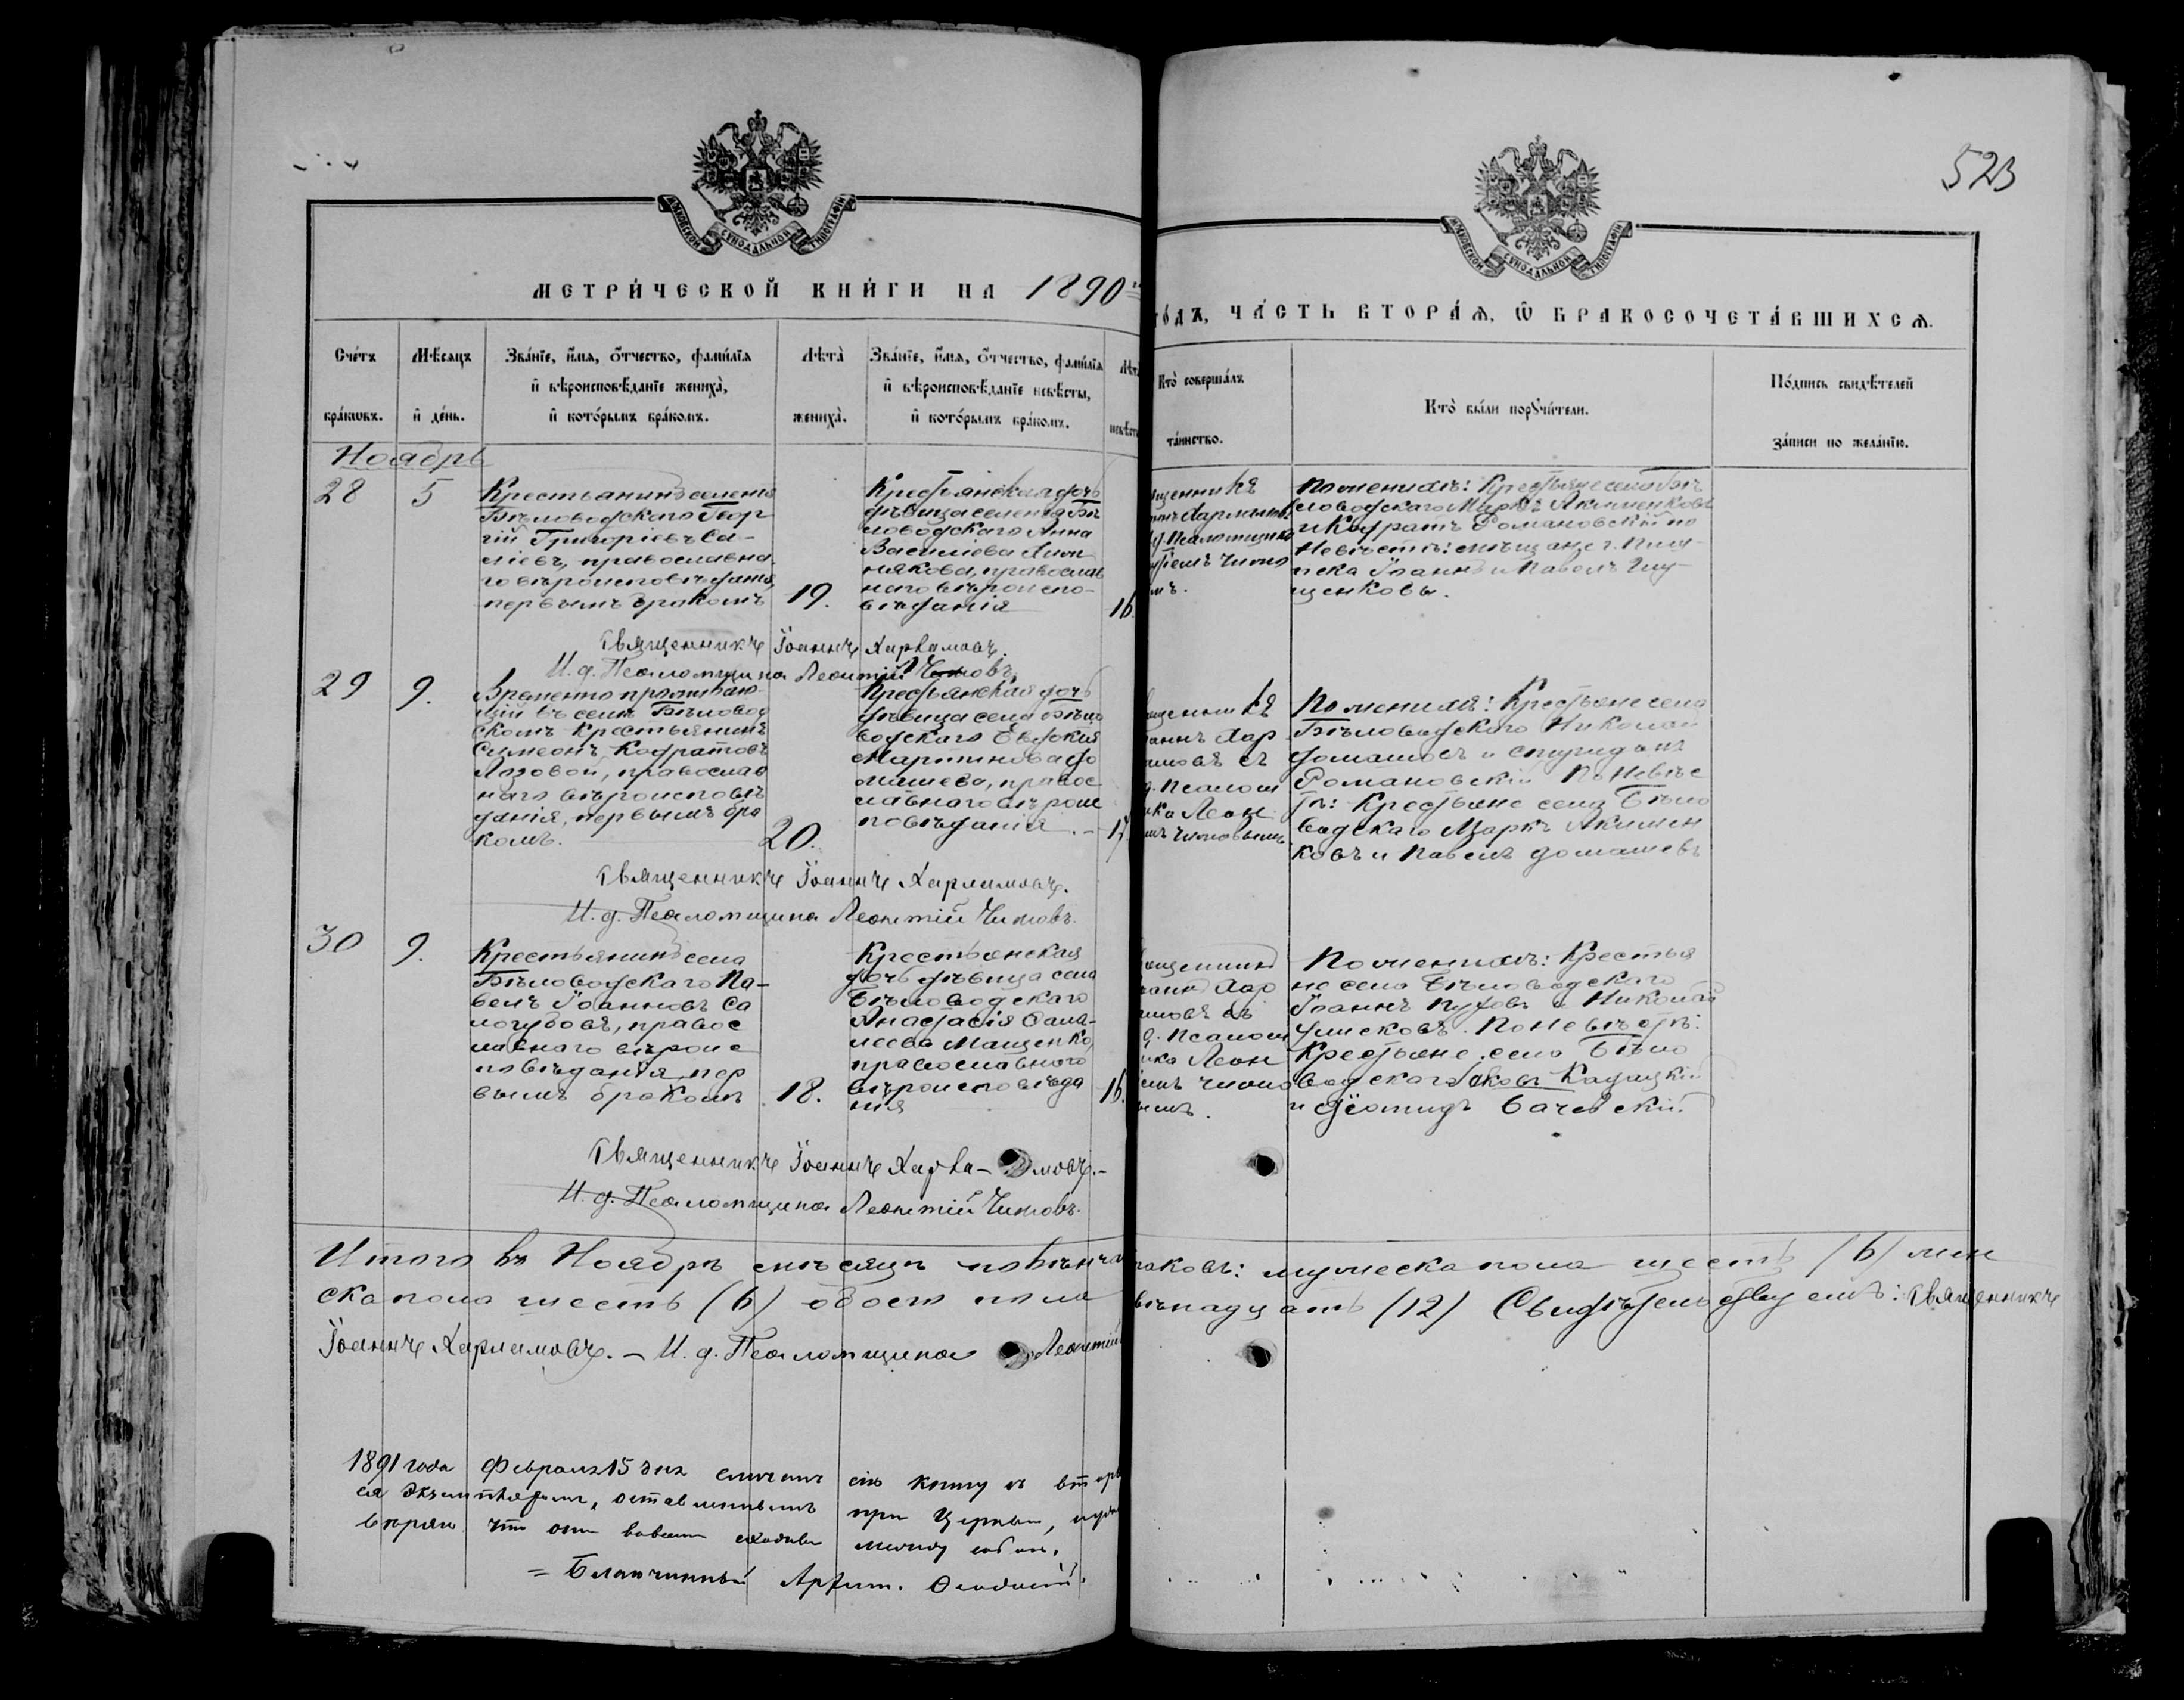 523
КІЕВСКОЙ СУНОДАЛЬНОЙ ТИПОГРАФІИ
КІЕВСКОЙ СУНОДАЛЬНОЙ ТИПОГРАФІИ
МЕТРИ́ЧЕСКОЙ КНИ́ГИ НА 1890
го́дъ, ЧА́СТЬ ВТОРА́Ѧ, Ѡ БРАКОСОЧЕТА́ВШИХСѦ.
Сче́тъ бра́кѡвъ.
Мѣ́сяцъ и҆ де́нь.
Зва́нїе, и҆́мѧ, о҆́тчество, фами́лїѧ
и҆ вѣроисповѣ́данїе жениха̀,
и҆ кото́рымъ бра́комъ.
Лѣта̀ жениха̀.
Зва́нїе, и҆́мѧ, о҆́тчество, фами́лїѧ
и҆ вѣроисповѣ́данїе невѣ́сты,
и҆ кото́рымъ бра́комъ.
Кто̀ соверша́лъ
та́инство.
Кто̀ бы́ли порꙋчи́тели.
По́дпись свидѣ́телей
за́писи по жела́нїю.
Ноябрь
28
5
Крестьянинъ селенія
Бѣловодскаго Геор-
гій Григоріевъ Са-
ліевъ, православна
го вѣроисповѣданія,
первымъ бракомъ
19.
Крестьянская дочь
дѣвица селенія Бѣ
ловодскаго Анна
Василіева
някова, православ
наго вѣроиспо-
вѣданія
16.
щенникъ
Харламп.
Псаломщико
Чипо
мъ.
По женихѣ: Крестьяне села Бѣ
ловодскаго Маркъ Акименковъ
и Кодратъ Романовскій по
Невѣстѣ: мѣщане г. Пиш-
пека Іоаннъ и Павелъ Глу-
щенковы.
Священникъ Іоаннъ Харламовъ.
И. д. Псаломщика Леонтій Чиповъ.
29
9.
Временно проживаю-
щій въ селѣ Бѣловод
скомъ крестьянинъ
Симеонъ Кодратовъ
Лозовой, православ
наго вѣроисповѣ
данія, первымъ бра
комъ.
20.
Крестьянская дочь
дѣвица села Бѣло
водскаго Евдокія
Мартинова До
машева, правос
лавнаго вѣроис
повѣданія. -
17.
щенникъ
аннъ Хар
ламовъ съ
д. Псалом
ика Леон
Чиповымъ
По женихѣ: Крестьяне села
Бѣловодскаго Николай
Домашовъ и Спиридонъ
Романовскій По Невѣс
тѣ: Крестьяне села Бѣло
водскаго Маркъ Акимен
ковъ и Павелъ Домашевъ
Священникъ Іоаннъ Харламовъ.
И. д. Псаломщика Леонтій Чиповъ.
30
9.
Крестьянинъ села
Бѣловодскаго Па-
велъ Іоанновъ Са
могубовъ, правос
лавнаго вѣроис
повѣданія, пер
вымъ бракомъ
18.
Крестьянская
дочь дѣвица села
Бѣловодскаго
Анастасія Сама-
леева Мащенко,
православнаго
вѣроисповѣда
нія
16.
щенник
Хар
ламовъ съ
д. Псалом
ика Леон
Чипо
вымъ.
По женихѣ: Крестья
не села Бѣловодскаго
Іоаннъ и Николай
По невѣстѣ:
Крестьяне села Бѣло
водскаго Яковъ Кадацкій
и Бачевскій.
Священникъ Іоаннъ Харла- мовъ.-
И. д. Псаломщика Леонтій Чиповъ.
Итого въ Ноябрѣ мѣсяцѣ повѣнча раковъ: мужеска пола шесть (6) жен
ска пола шесть (6) обоего пола вѣнадцать (12) Свидѣтельствуемъ: Священникъ
Іоаннъ Харламовъ. - И. д. Псаломщика Леонтій
1891 года Февраля 15 дня сличил сію книгу съ втор
ся экземпляромъ, оставленнымъ при Церкви,
что они вовсемъ сходны между собою.
= Благочинный